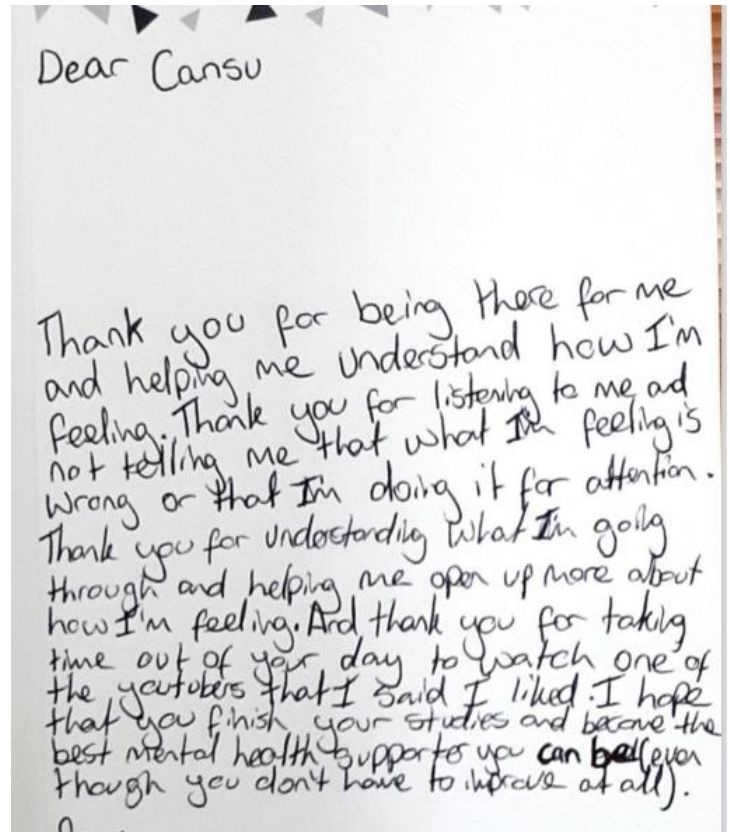 Dear Cansu
Thank you for being there for me
and helping me understand how I'm
feeling. Thank you for listening to me and
not telling me that what I'm feeling is
wrong or that I'm doing it for attention.
Thank you for understanding what I'm going
through and helping me open up more about
how I'm feeling. And thank you for taking
time out of your day to watch one of
the youtubers that I said I liked. I hope
that you finish your studies and become the
best mental health supporter you can be (even
though you don't have to improve at all).